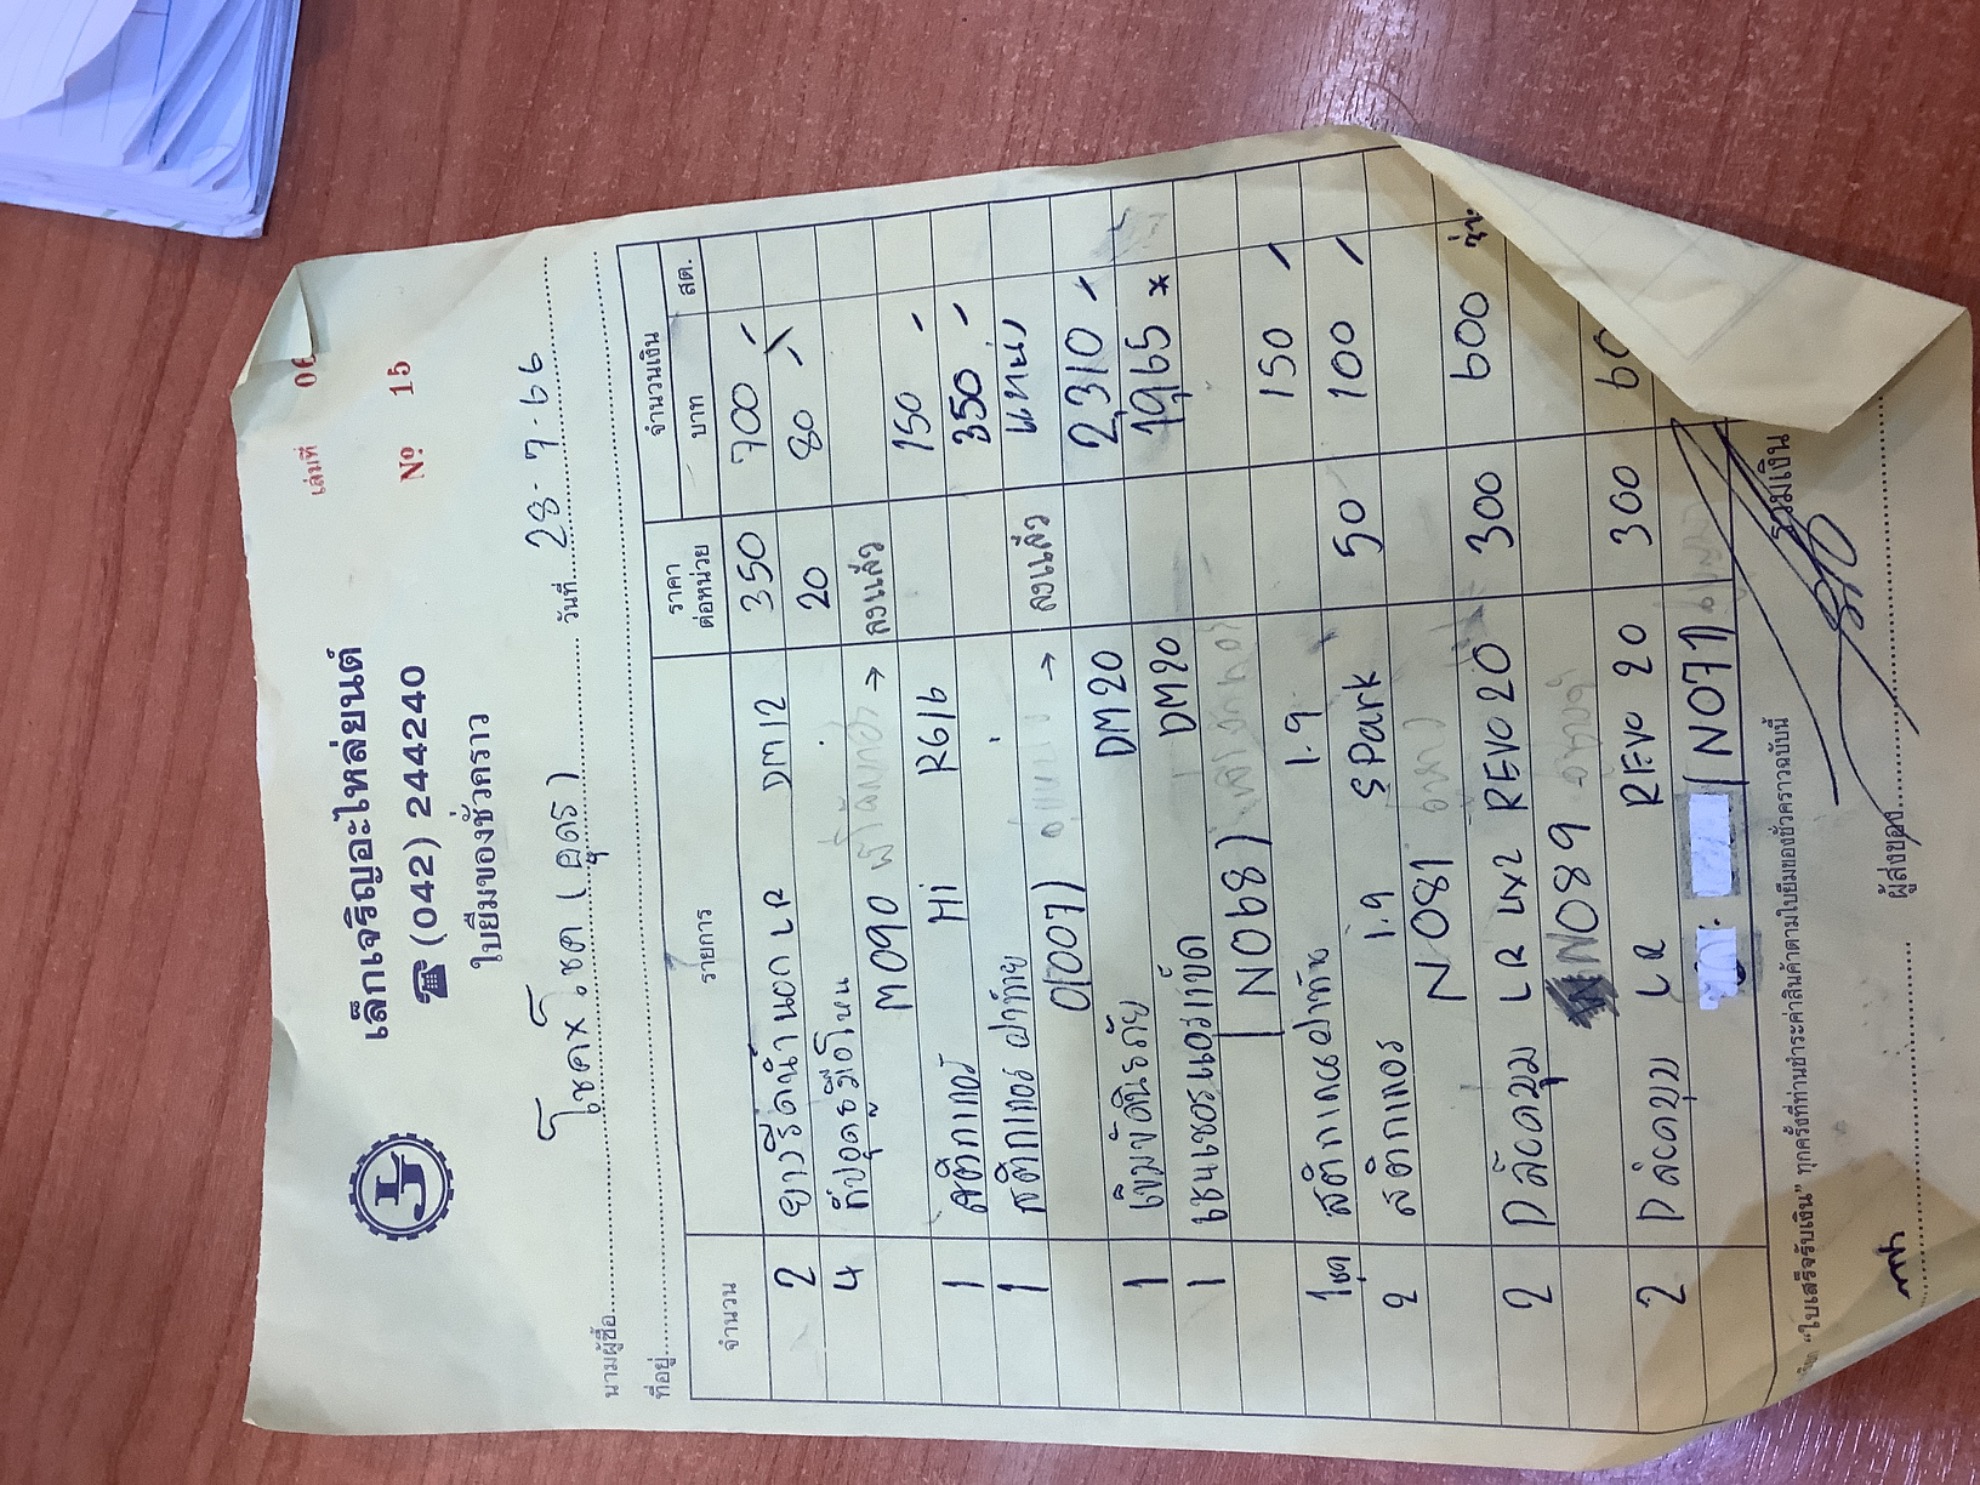 เล่มที่ 06
เล็กเจริญอะไหล่ยนต์
☎ (042) 244240
Nº 15
ใบยืมของชั่วคราว
นามผู้ซื้อ โชคxโชค (อุดร) วันที่ 28-7-66
ที่อยู่
จำนวน รายการ ราคาต่อหน่วย จำนวนเงิน บาท สต.
2 ยางรีดน้ำนอก LR DM12 350 700
4 20 80
M090 → ลงแล้ว
1 สติกเกอร์ Hi R616 150
1 สติกเกอร์ ฝาท้าย 350
01007) → ลงแล้ว
1 เข็มขัดนิรภัย DM20 2,310
1 DM20 1,965 *
N068)
1ชุด สติกเกอร์ฝาท้าย 1.9 150
2 สติกเกอร์ 1.9 SPark 50 100
N081
2 LR 4x2 REVO 20 300 600
N089
2 LR REVO 20 300 60
N071)
รวมเงิน
"ใบเสร็จรับเงิน" ทุกครั้งที่ท่านชำระค่าสินค้าตามใบยืมของชั่วคราวฉบับนี้
ผู้ส่งของ